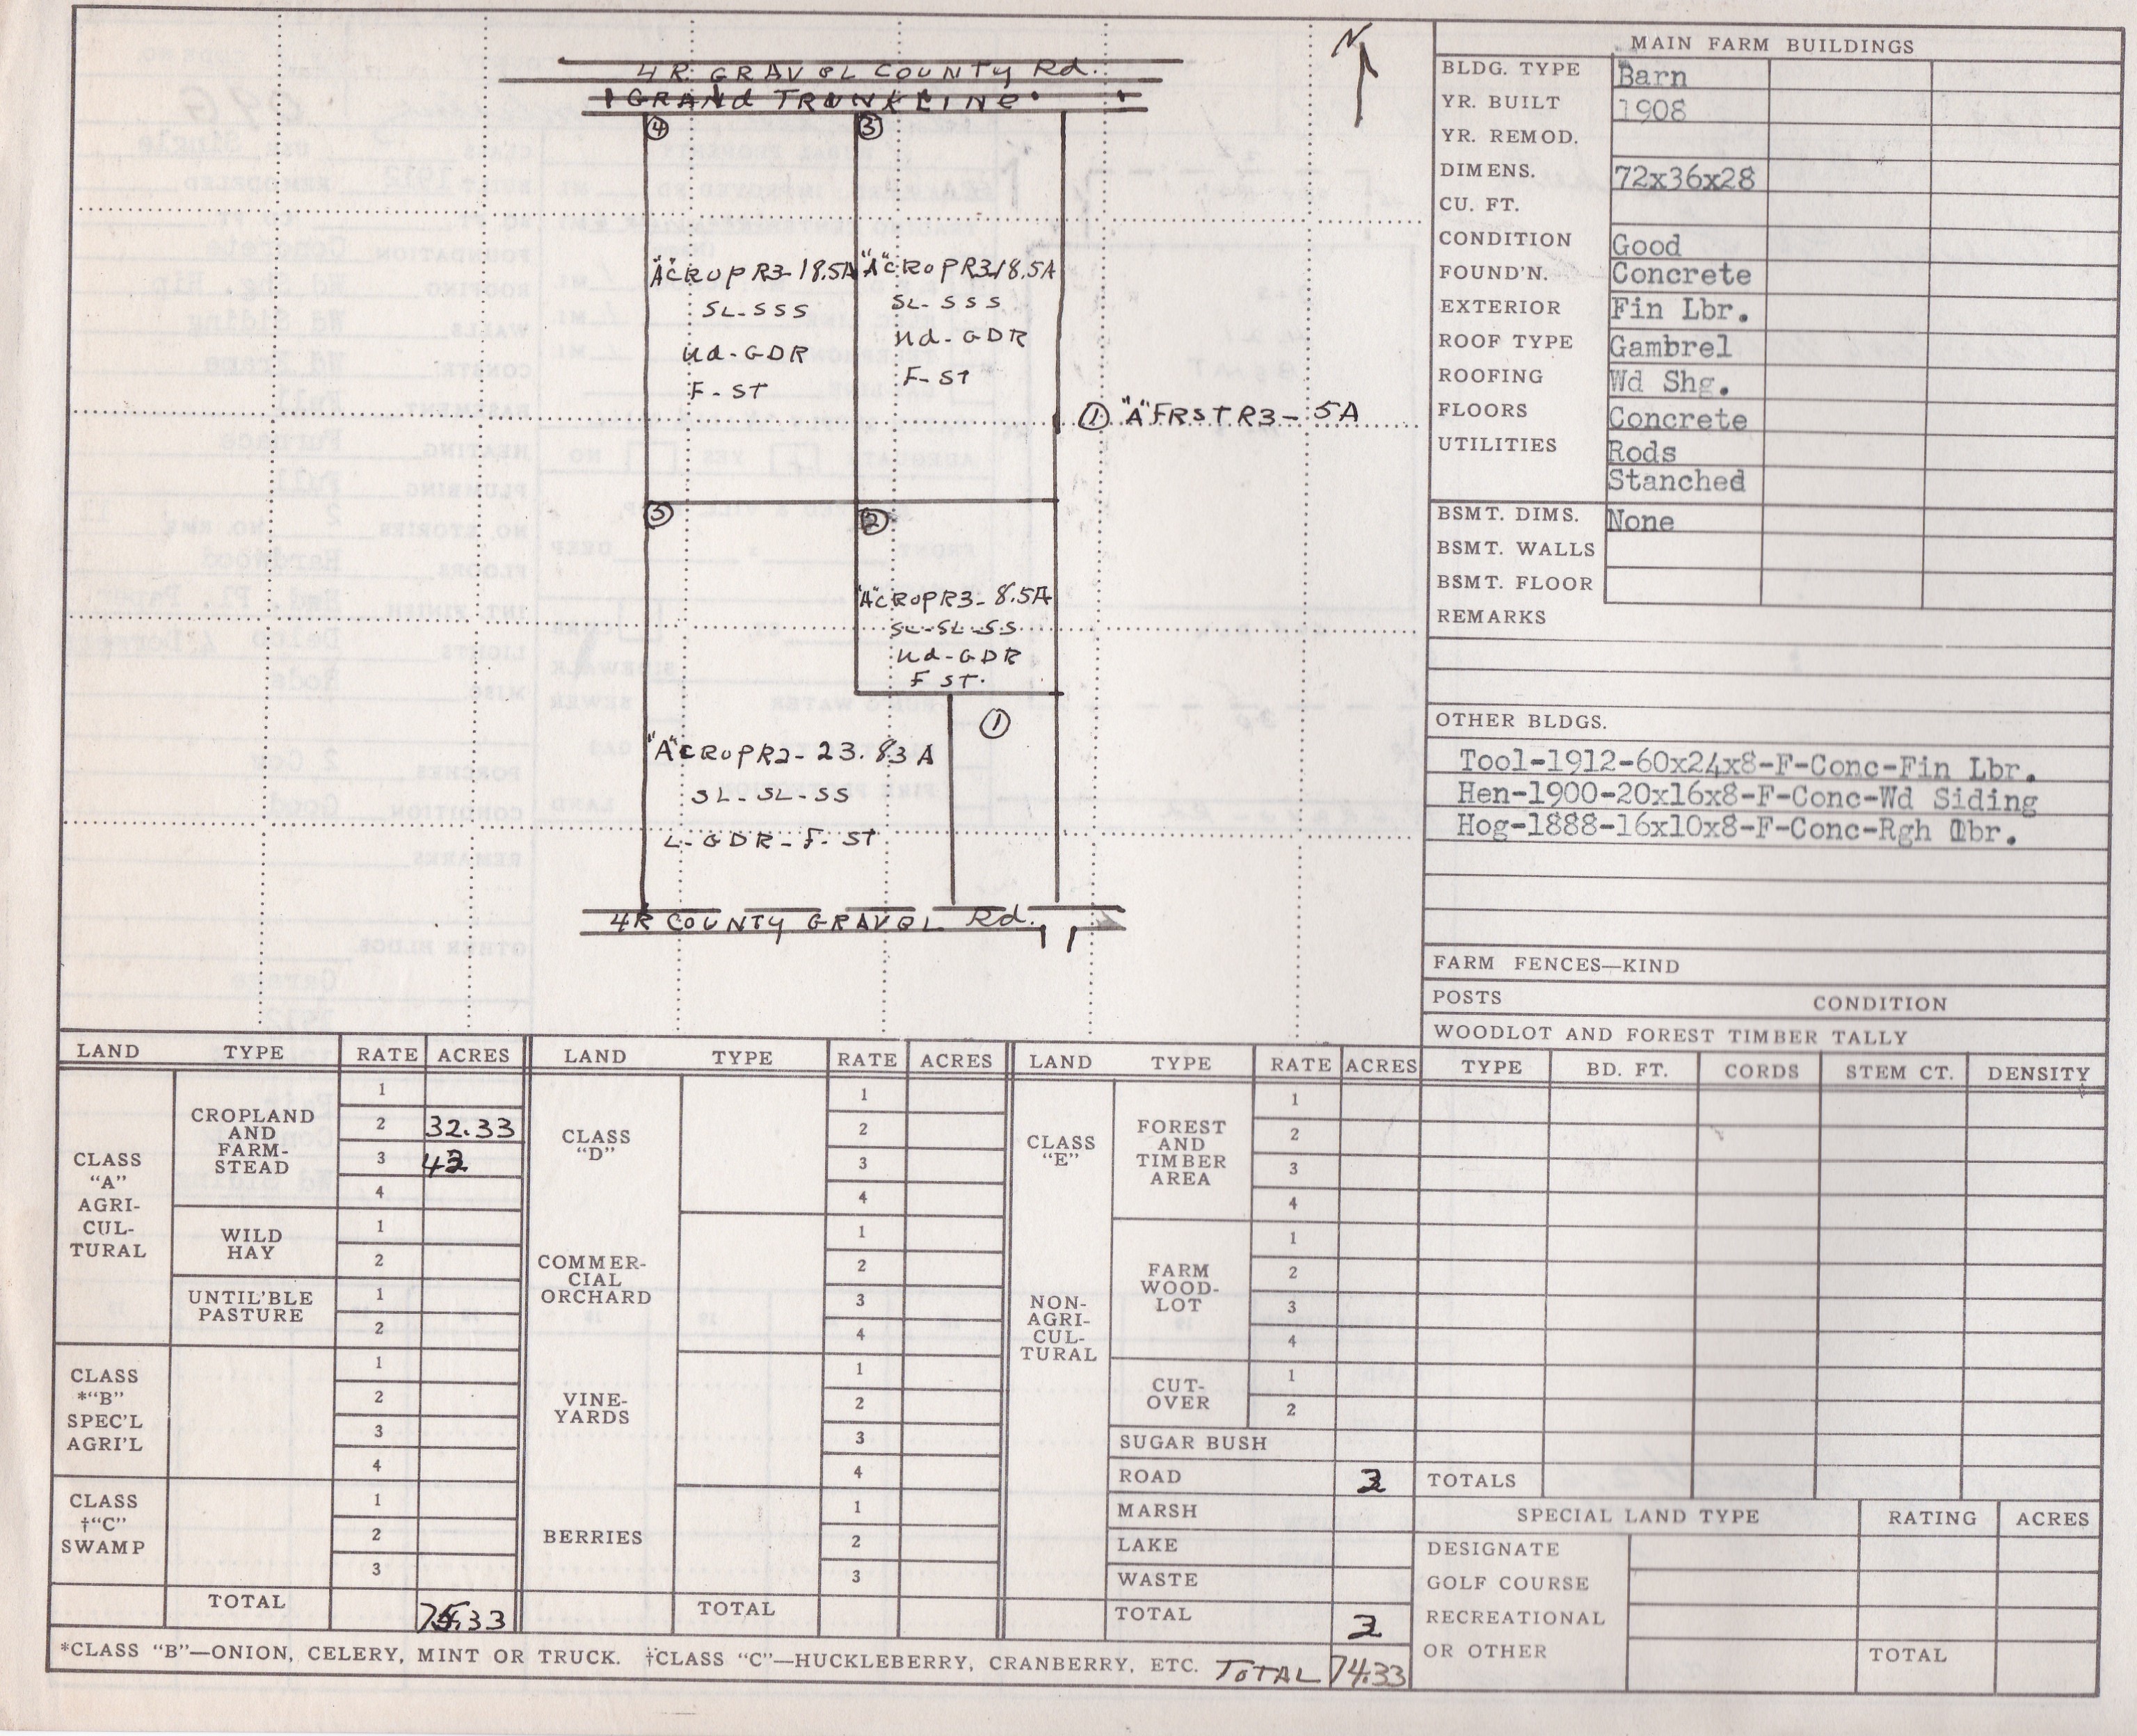 N
4 R. GRAVEL COUNTY Rd.
GRANd TRUNK LINE
④ ③
"A" CROP R3-18.5A
SL-SSS
Ud-GDR
F-ST
"A" CROP R3 18.5A
SL-SSS
Ud-GDR
F-ST
① "A" FRST R3-5A
⑤ ②
"A" CROP R3-8.5A
SL-SL-SS
Ud-GDR
F ST.
①
"A" CROP R2-23.83 A
SL-SL-SS
L-GDR-F-ST
4R COUNTY GRAVEL Rd.
MAIN FARM BUILDINGS
BLDG. TYPE Barn
YR. BUILT 1908
YR. REMOD.
DIMENS. 72x36x28
CU. FT.
CONDITION Good
FOUND'N. Concrete
EXTERIOR Fin Lbr.
ROOF TYPE Gambrel
ROOFING Wd Shg.
FLOORS Concrete
UTILITIES Rods
Stanched
BSMT. DIMS. None
BSMT. WALLS
BSMT. FLOOR
REMARKS
OTHER BLDGS.
Tool-1912-60x24x8-F-Conc-Fin Lbr.
Hen-1900-20x16x8-F-Conc-Wd Siding
Hog-1888-16x10x8-F-Conc-Rgh Lbr.
FARM FENCES—KIND
POSTS CONDITION
WOODLOT AND FOREST TIMBER TALLY
TYPE BD. FT. CORDS STEM CT. DENSITY
TOTALS
SPECIAL LAND TYPE RATING ACRES
DESIGNATE
GOLF COURSE
RECREATIONAL
OR OTHER TOTAL
LAND TYPE RATE ACRES
CLASS
"A"
AGRI-
CUL-
TURAL
CROPLAND
AND
FARM-
STEAD
1
2 32.33
3
4
WILD
HAY
1
2
UNTIL'BLE
PASTURE
1
2
CLASS
*"B"
SPEC'L
AGRI'L
1
2
3
4
CLASS
†"C"
SWAMP
1
2
3
TOTAL
LAND TYPE RATE ACRES
CLASS
"D"
1
2
3
4
COMMER-
CIAL
ORCHARD
1
2
3
4
VINE-
YARDS
1
2
3
4
BERRIES
1
2
3
TOTAL
LAND TYPE RATE ACRES
CLASS
"E"
NON-
AGRI-
CUL-
TURAL
FOREST
AND
TIMBER
AREA
1
2
3
4
FARM
WOOD-
LOT
1
2
3
4
CUT-
OVER
1
2
SUGAR BUSH
ROAD
MARSH
LAKE
WASTE
TOTAL
*CLASS "B"—ONION, CELERY, MINT OR TRUCK. †CLASS "C"—HUCKLEBERRY, CRANBERRY, ETC. TOTAL 74.33